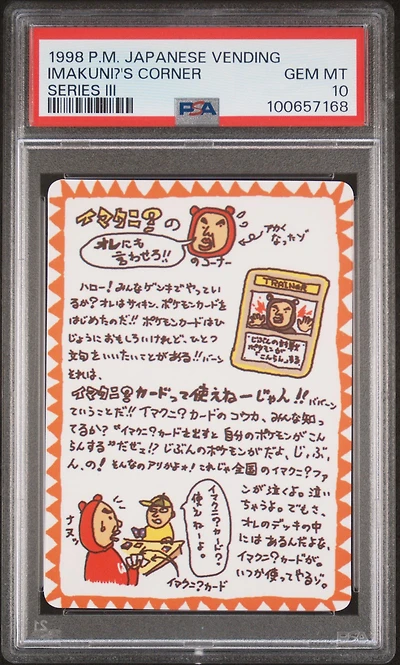 1998 P.M. JAPANESE VENDING
IMAKUNI?'S CORNER GEM MT
SERIES III 10
PSA 100657168
イマクニ?の
オレにも
言わせろ!!
のコーナー
アカく
なったゾ
TRAINER
じぶんの
ポケモンが
"こんらん"する
ハロー!みんなゲンキでやってい
るか?オレはサイキン、ポケモンカードを
はじめたのだ!!ポケモンカードはひ
じょうにおもしろいけれど、ひとつ
文句をいいたいことがある!!バーン
それは、
イマクニ?カードって使えねーじゃん!!ババーン
ということだ!!イマクニ?カードのコウカ、みんな知っ
てるか?"イマクニ?カードを出すと自分のポケモンがこん
らんする"だぜ!?じぶんのポケモンがだよ、じ、ぶ、
ん、の!そんなのアリかよォ!これじゃ全国のイマクニ?ファ
ンが泣くよ。泣い
ちゃうよ。でもさ、
オレのデッキの中
にはあるんだよな、
イマクニ?カードが。
いつか使ってやるゾ。
ナヌッ
イマクニ?カード?
使えねーよ。
イマクニ?カード